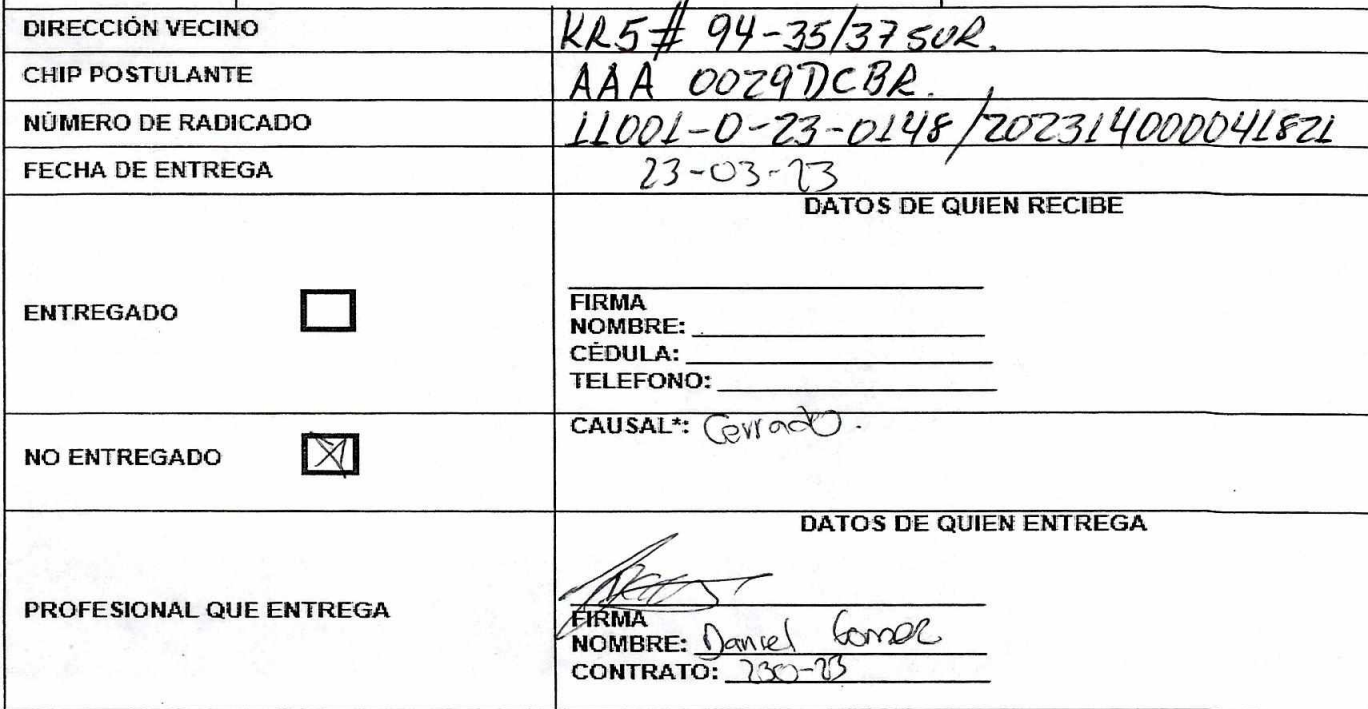 DIRECCIÓN VECINO KR5# 94-35/37 SUR.
CHIP POSTULANTE AAA 0029DCBR.
NÚMERO DE RADICADO 11001-0-23-0148/202314000041821
FECHA DE ENTREGA 23-03-23
DATOS DE QUIEN RECIBE
ENTREGADO
FIRMA
NOMBRE:
CÉDULA:
TELEFONO:
NO ENTREGADO
CAUSAL*: Cerrado.
DATOS DE QUIEN ENTREGA
PROFESIONAL QUE ENTREGA
FIRMA
NOMBRE: Daniel Gomez
CONTRATO: 230-23